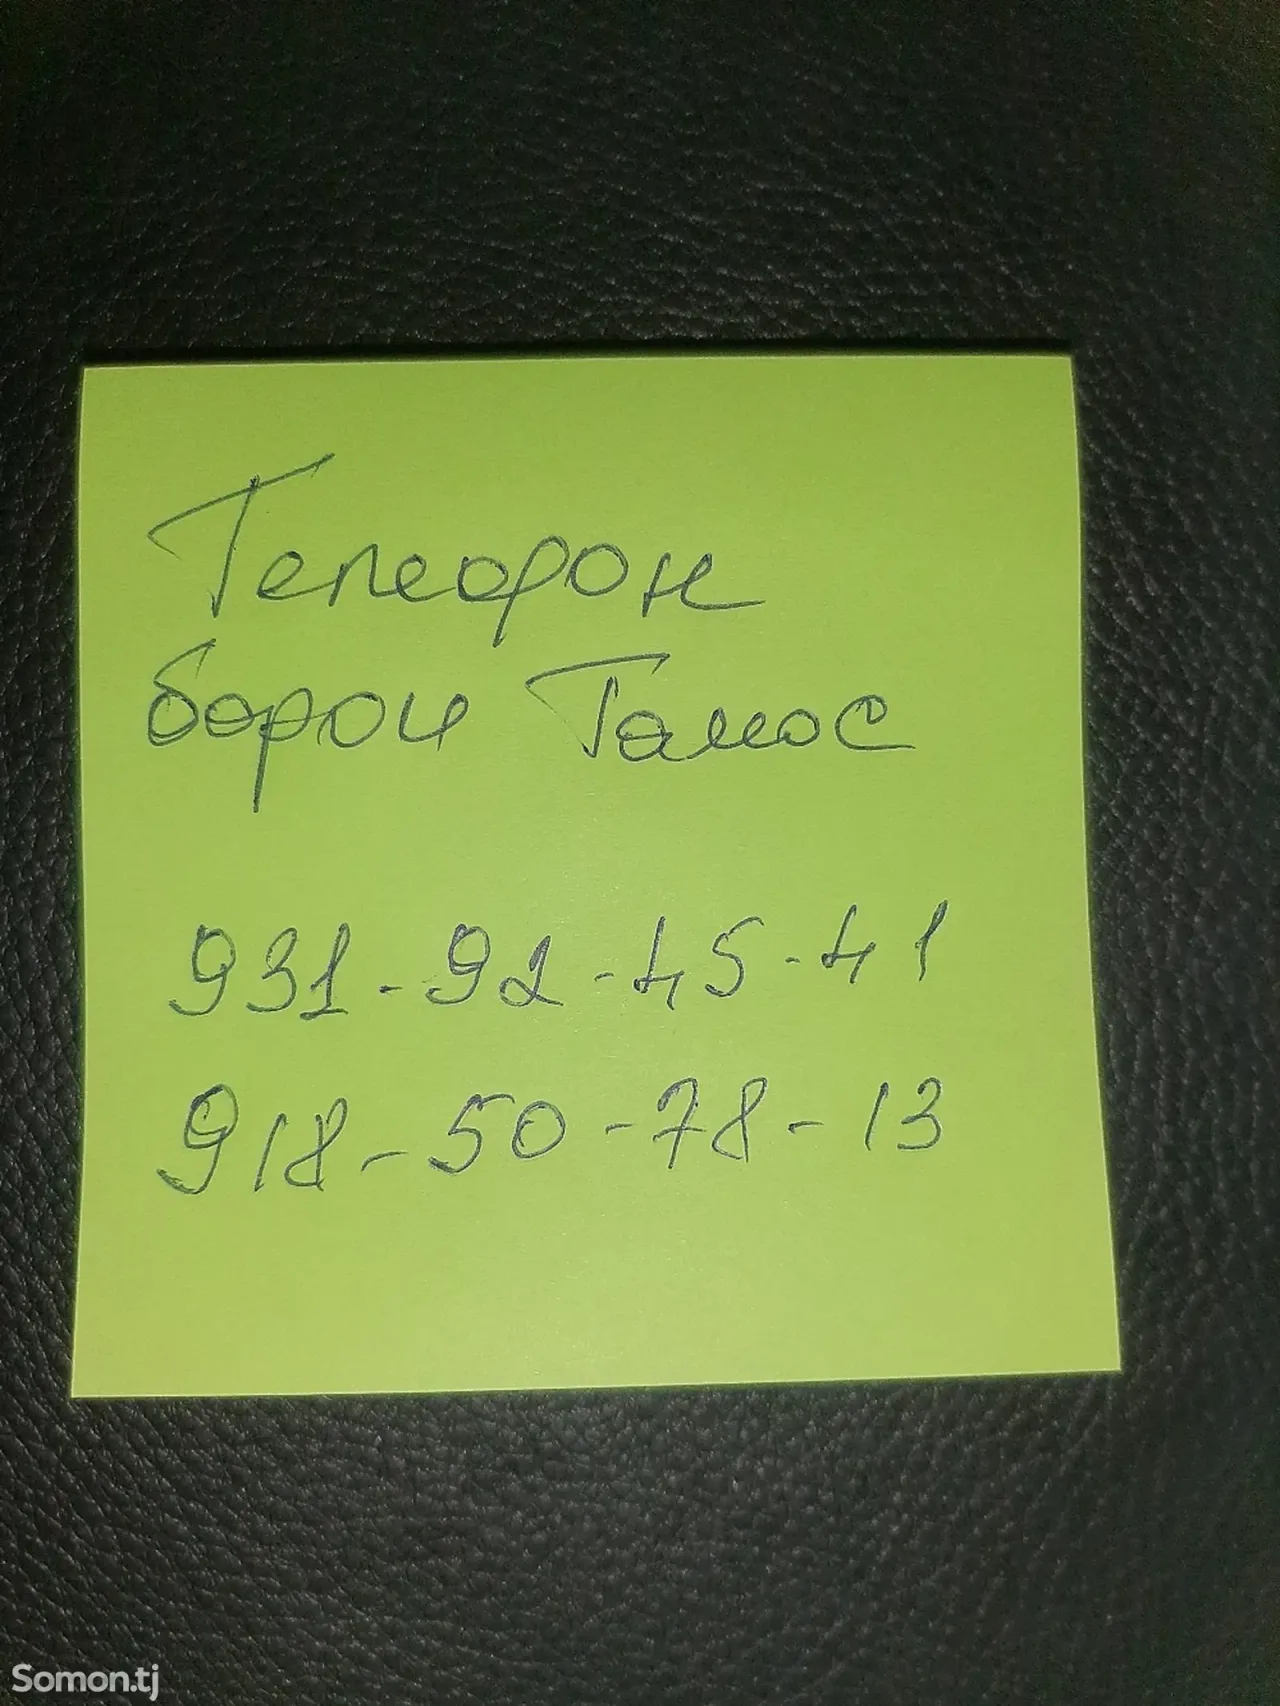 Телефон
барои Тамос
931-92-45-41
918-50-78-13
Somon.tj